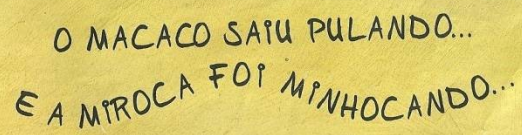 O MACACO SAIU PULANDO...
E A MIROCA FOI MINHOCANDO...